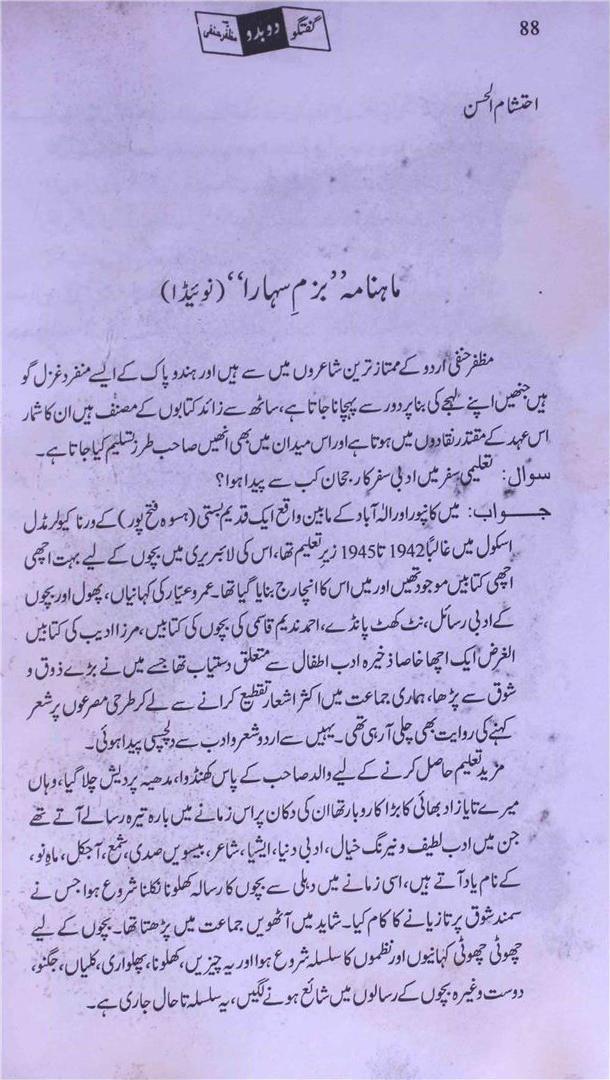 گفتگو دوبدو مظفر حنفی
88
احتشام الحسن
ماہنامہ ’’بزمِ سہارا‘‘ (نوئیڈا)
مظفر حنفی اردو کے ممتاز ترین شاعروں میں سے ہیں اور ہندو پاک کے ایسے منفرد غزل گو
ہیں جنھیں اپنے لہجے کی بنا پر دور سے پہچانا جاتا ہے، ساٹھ سے زائد کتابوں کے مصنف ہیں ان کا شمار
اس عہد کے مقتدر نقادوں میں ہوتا ہے اور اس میدان میں بھی انھیں صاحب طرز تسلیم کیا جاتا ہے۔
سوال: تعلیمی سفر میں ادبی سفر کا رجحان کب سے پیدا ہوا؟
جواب: میں کانپور اور الہ آباد کے مابین واقع ایک قدیم بستی (ہسوہ فتح پور) کے ورناکیولر مڈل
اسکول میں غالباً 1942 تا 1945 زیر تعلیم تھا، اس کی لائبریری میں بچوں کے لیے بہت اچھی
اچھی کتابیں موجود تھیں اور میں اس کا انچارج بنایا گیا تھا۔ عمرو عیّار کی کہانیاں، پھول اور بچوں
کے ادبی رسائل، نٹ کھٹ پانڈے، احمد ندیم قاسمی کی بچوں کی کتابیں، مرزا ادیب کی کتابیں
الغرض ایک اچھا خاصا ذخیرہ ادب اطفال سے متعلق دستیاب تھا جسے میں نے بڑے ذوق و
شوق سے پڑھا، ہماری جماعت میں اکثر اشعار تقطیع کرانے سے لے کر طرحی مصرعوں پر شعر
کہنے کی روایت بھی چلی آرہی تھی۔ یہیں سے اردو شعر و ادب سے دلچسپی پیدا ہوئی۔
مزید تعلیم حاصل کرنے کے لیے والد صاحب کے پاس کھنڈوا، مدھیہ پردیش چلا گیا، وہاں
میرے تایا زاد بھائی کا بڑا کاروبار تھا ان کی دکان پر اس زمانے میں بارہ تیرہ رسالے آتے تھے
جن میں ادب لطیف و نیرنگ خیال، ادبی دنیا، ایشیا، شاعر، بیسویں صدی، شمع، آجکل، ماہِ نو،
کے نام یاد آتے ہیں، اسی زمانے میں دہلی سے بچوں کا رسالہ کھلونا نکلنا شروع ہوا جس نے
سمند شوق پر تازیانے کا کام کیا۔ شاید میں آٹھویں جماعت میں پڑھتا تھا۔ بچوں کے لیے
چھوٹی چھوٹی کہانیوں اور نظموں کا سلسلہ شروع ہوا اور یہ چیزیں، کھلونا، پھلواری، کلیاں، جگنو،
دوست وغیرہ بچوں کے رسالوں میں شائع ہونے لگیں، یہ سلسلہ تا حال جاری ہے۔